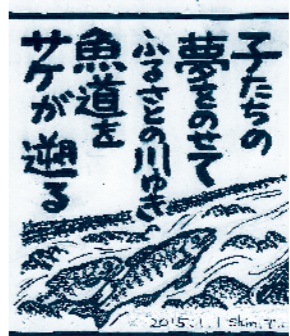 子たちの
夢をのせて
ふるさとの川ゆき
魚道を
サケが遡る
2015.1.1 Shin.T.